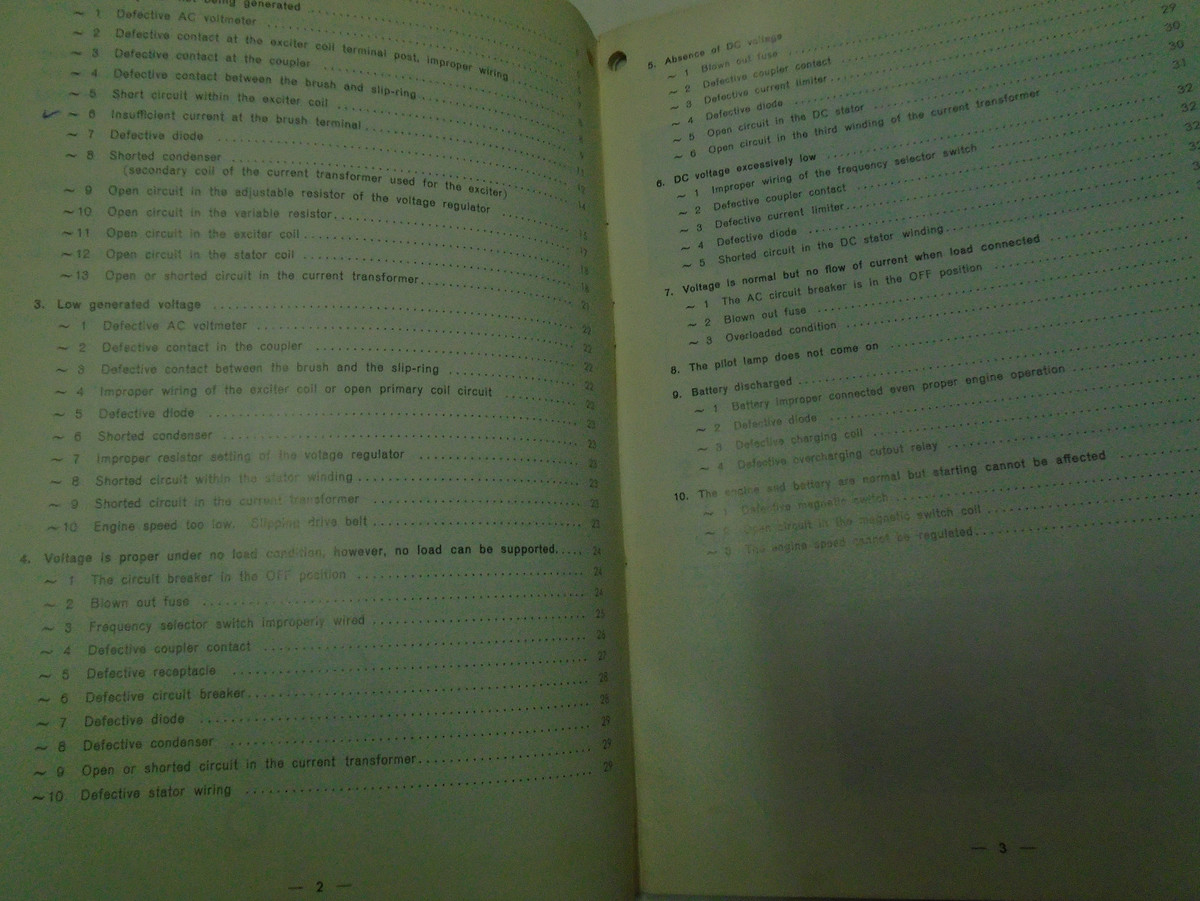 being generated
~ 1 Defective AC voltmeter
~ 2 Defective contact at the exciter coil terminal post, improper wiring
~ 3 Defective contact at the coupler
~ 4 Defective contact between the brush and slip-ring
~ 5 Short circuit within the exciter coil
~ 6 Insufficient current at the brush terminal
~ 7 Defective diode
~ 8 Shorted condenser
(secondary coil of the current transformer used for the exciter)
~ 9 Open circuit in the adjustable resistor of the voltage regulator 14
~10 Open circuit in the variable resistor 15
~11 Open circuit in the exciter coil 17
~12 Open circuit in the stator coil 18
~13 Open or shorted circuit in the current transformer
3. Low generated voltage 21
~ 1 Defective AC voltmeter 22
~ 2 Defective contact in the coupler 22
~ 3 Defective contact between the brush and the slip-ring 22
~ 4 Improper wiring of the exciter coil or open primary coil circuit 22
~ 5 Defective diode
~ 6 Shorted condenser 23
~ 7 Improper resistor setting of the votage regulator 23
~ 8 Shorted circuit within the stator winding 23
~ 9 Shorted circuit in the current transformer 23
~10 Engine speed too low. Slipping drive belt 23
4. Voltage is proper under no load condition, however, no load can be supported. 24
~ 1 The circuit breaker in the OFF position 24
~ 2 Blown out fuse 24
~ 3 Frequency selector switch improperly wired 25
~ 4 Defective coupler contact 26
~ 5 Defective receptacle 27
~ 6 Defective circuit breaker 28
~ 7 Defective diode 28
~ 8 Defective condenser 29
~ 9 Open or shorted circuit in the current transformer 29
~10 Defective stator wiring 29
— 2 —
5. Absence of DC voltage 29
~ 1 Blown out fuse 29
~ 2 Defective coupler contact 30
~ 3 Defective current limiter 30
~ 4 Defective diode 31
~ 5 Open circuit in the DC stator 32
~ 6 Open circuit in the third winding of the current transformer 32
6. DC voltage excessively low 32
~ 1 Improper wiring of the frequency selector switch
~ 2 Defective coupler contact
~ 3 Defective current limiter
~ 4 Defective diode
~ 5 Shorted circuit in the DC stator winding
7. Voltage is normal but no flow of current when load connected
~ 1 The AC circuit breaker is in the OFF position
~ 2 Blown out fuse
~ 3 Overloaded condition
8. The pilot lamp does not come on
9. Battery discharged
~ 1 Battery improper connected even proper engine operation
~ 2 Defective diode
~ 3 Defective charging coil
~ 4 Defective overcharging cutout relay
10. The engine and battery are normal but starting cannot be affected
~ 1 Defective magnetic switch
~ 2 Open circuit in the magnetic switch coil
~ 3 The engine speed cannot be regulated
— 3 —